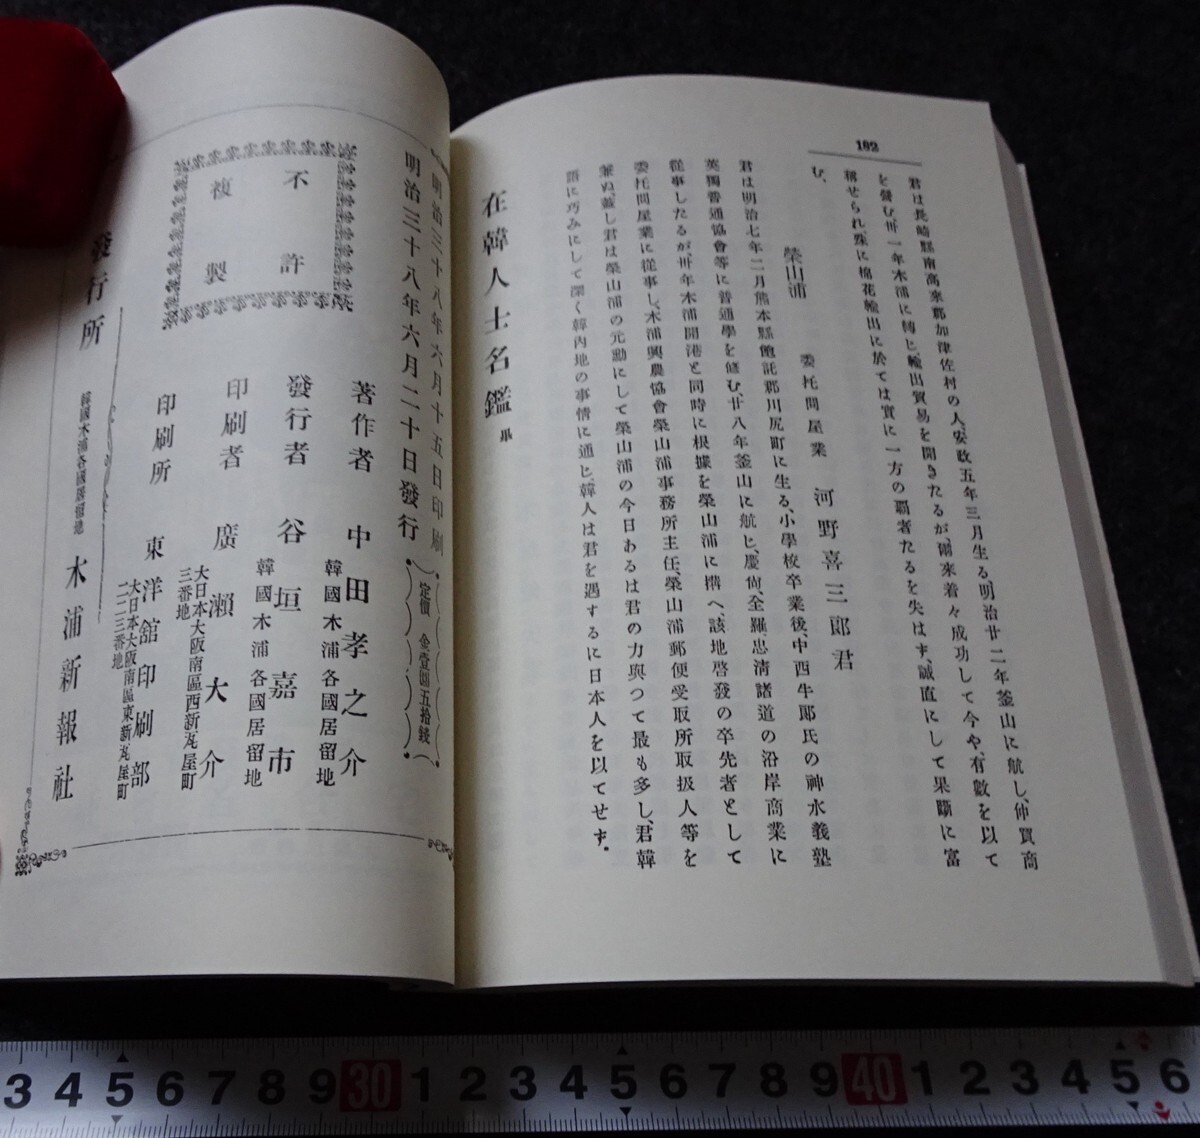 102
君は長崎縣南高來郡加津佐村の人、安政五年三月生る、明治廿二年釜山に航し、仲買商
を營む、卅一年木浦に轉じ、輸出貿易を開きたるが、爾來着々成功して今や、有數を以て
稱せられ、殊に棉花輸出に於ては實に一方の覇者たるを失はず、誠直にして果斷に富
む、
榮山浦 委托問屋業 河野喜三郎君
君は明治七年二月熊本縣飽託郡川尻町に生る、小學校卒業後、中西牛郎氏の神水義塾
英獨普通協會等に普通學を修む、廿八年釜山に航じ、慶尙、全羅、忠淸諸道の沿岸商業に
從事したるが、卅年木浦開港と同時に根據を榮山浦に構へ、該地啓發の卒先者として
委托問屋業に從事し、木浦興農協會榮山浦事務所主任、榮山浦郵便受取所取扱人等を
兼ぬ、蓋し君は榮山浦の元勳にして榮山浦の今日あるは君の力與つて最も多し、君韓
語に巧みにして深く韓內地の事情に通じ、韓人は君を遇するに日本人を以てせず。
在韓人士名鑑 畢
明治三十八年六月十五日印刷
明治三十八年六月二十日發行
定價 金壹圓五拾錢
不許
複製
著作者 中田孝之介
韓國木浦各國居留地
發行者 谷垣嘉市
韓國木浦各國居留地
印刷者 廣瀨大介
大日本大阪南區西新瓦屋町
三番地
印刷所 東洋舘印刷部
大日本大阪南區東新瓦屋町
二二三番地
發行所 韓國木浦各國居留地 木浦新報社
3 4 5 6 7 8 9 30 1 2 3 4 5 6 7 8 9 40 1 2 3 4 5 6